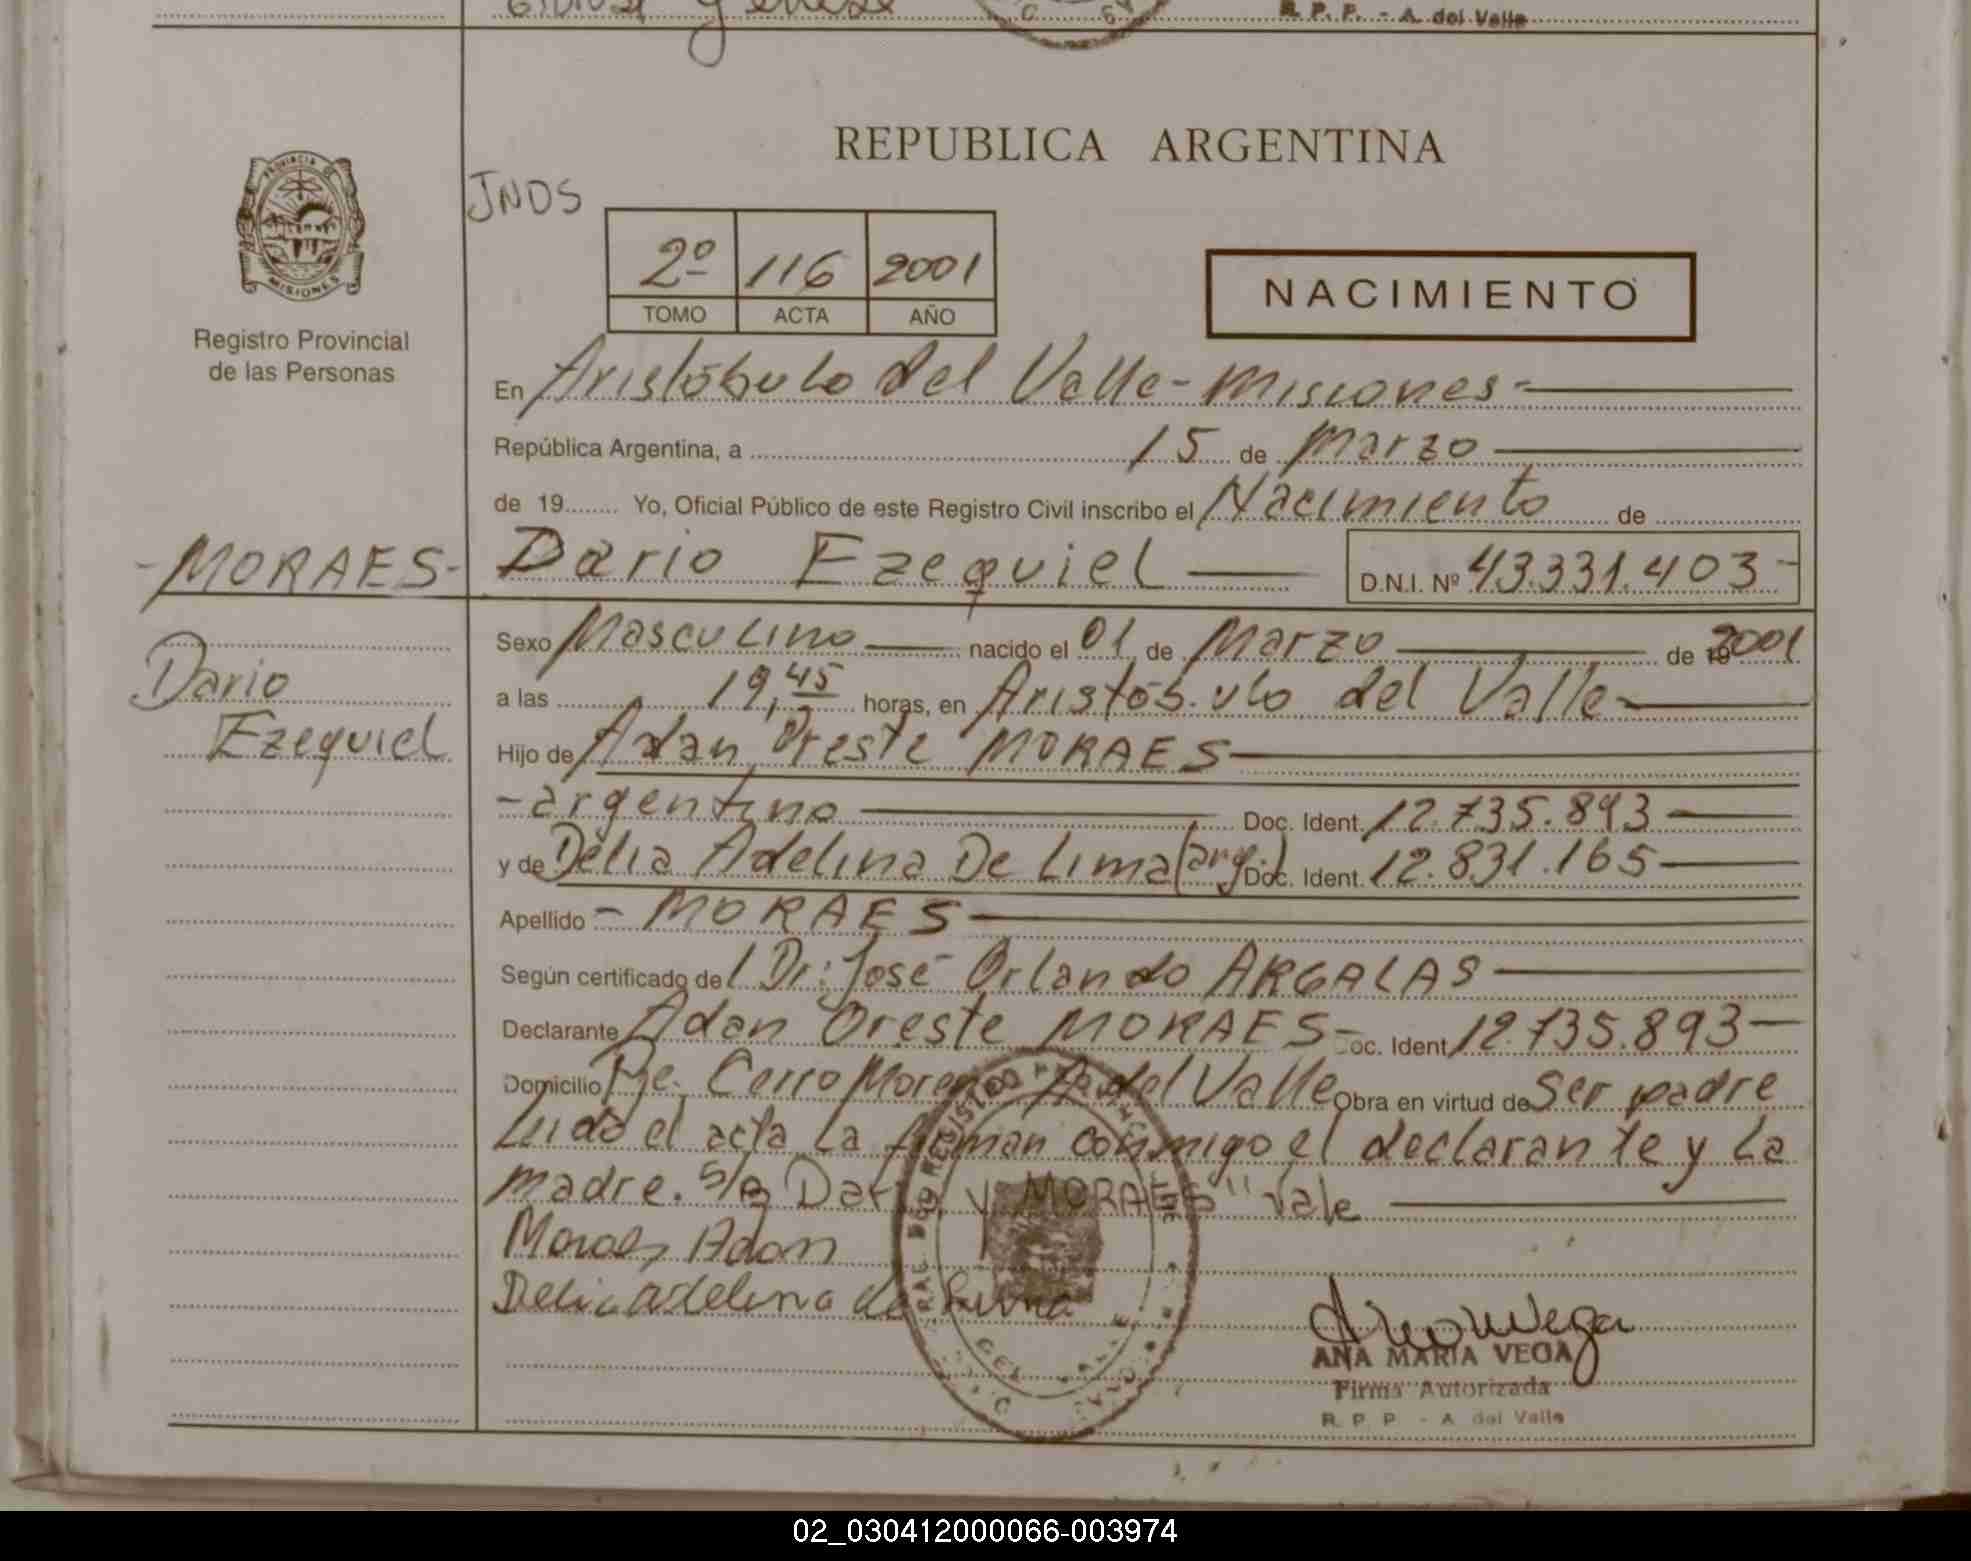 R. P. P. - A. del Valle
REPUBLICA ARGENTINA
PROVINCIA DE
MISIONES
Registro Provincial
de las Personas
JNDS
2º 116 2001
TOMO ACTA AÑO
NACIMIENTO
En Aristóbulo del Valle - Misiones -
República Argentina, a 15 de Marzo
de 19........ Yo, Oficial Público de este Registro Civil inscribo el Nacimiento de
- MORAES -
Dario Ezequiel D.N.I. Nº 43.331.403 -
Dario
Ezequiel
Sexo Masculino nacido el 01 de Marzo de 2001
a las 19,45 horas, en Aristób.ulo del Valle
Hijo de Adan Oreste MORAES
- argentino Doc. Ident. 12.735.893
y de Delia Adelina De Lima (arg.) Doc. Ident. 12.831.165
Apellido - MORAES
Según certificado de l Dr: José Orlando ARGALAS
Declarante Adan Oreste MORAES - Doc. Ident. 12.735.893
Domicilio Pje. Cerro Moreno A. del Valle Obra en virtud de Ser padre
Leido el acta la firman conmigo el declarante y la
madre. S/R Dario y "MORAES" Vale
Moraes Adan
Delia adelina de Lima
ANA MARIA VEGA
Firma Autorizada
R. P. P. - A. del Valle
02_030412000066-003974